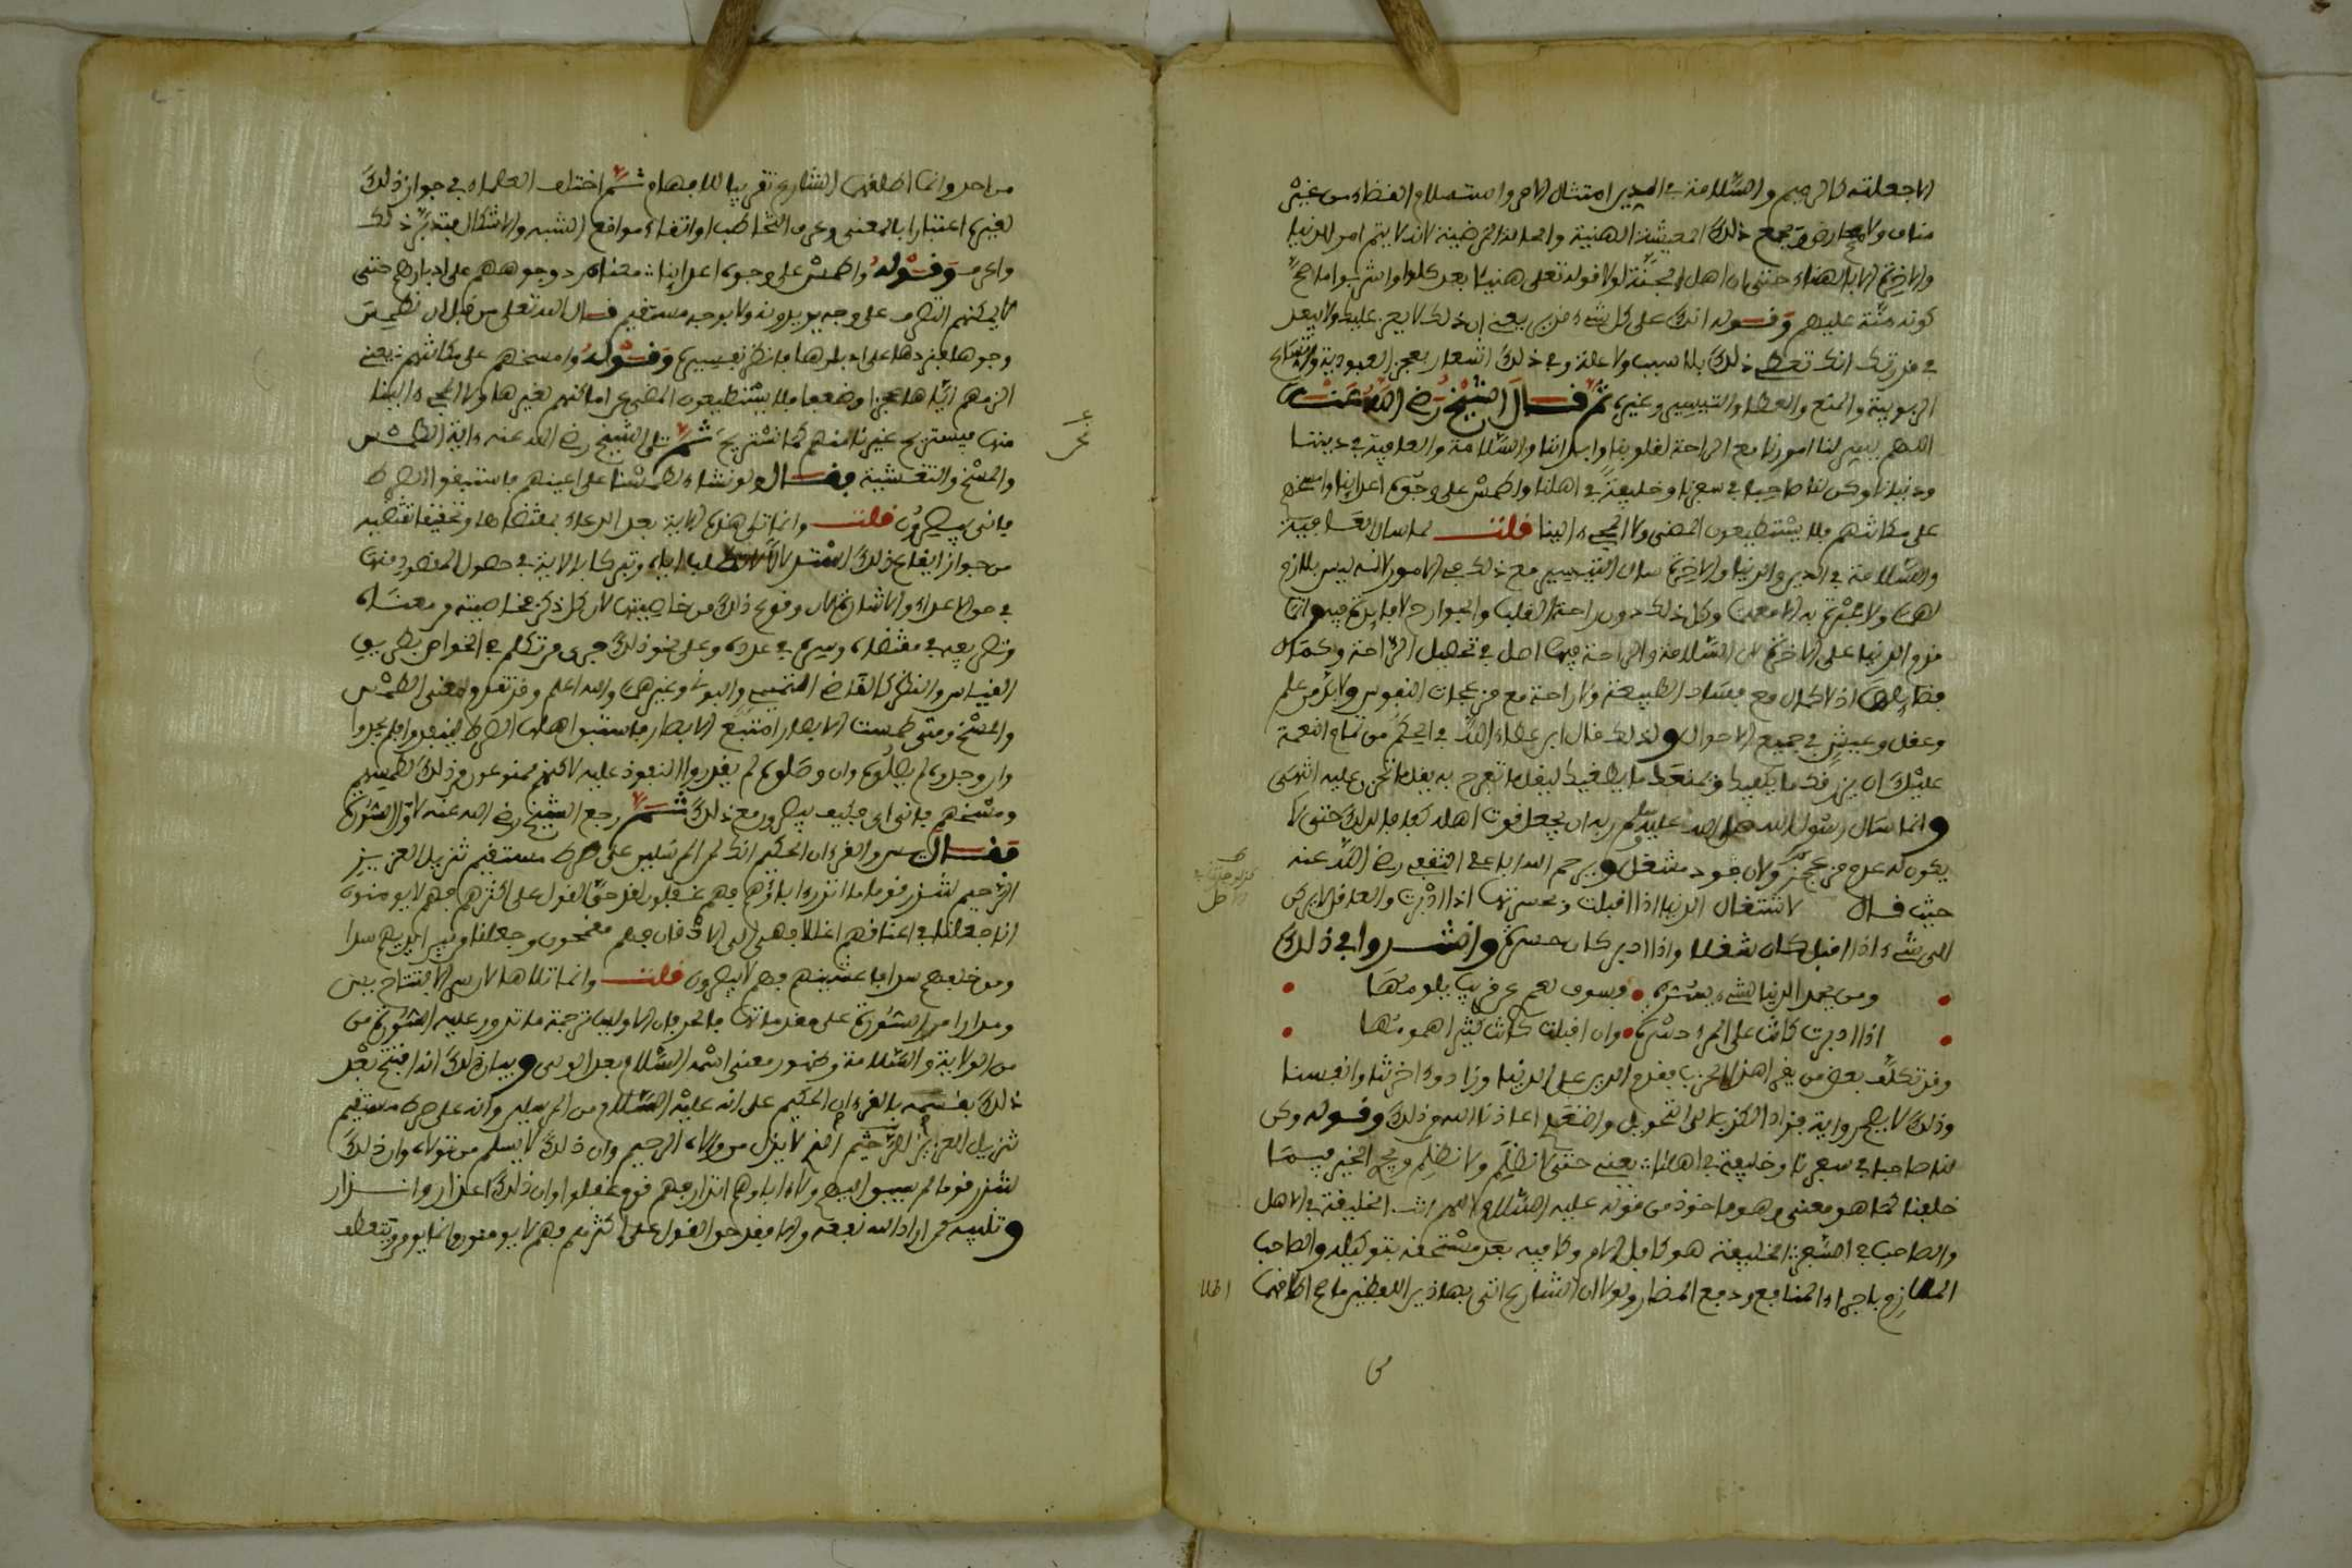 الا جعلته كالرميم والسلامة في الدين امتثال الامر والاستسلام للقضاء من غير
مناف ولا معارض وجمع ذلك المعيشة الهنية والحالة المرضية لانه لا يتم امر للدنيا
والاخرة الا بالهناء حتى ان اهل الجنة لولا قوله تعلى هنيئا بعد كلوا واشربوا ما صح
كونه منة عليهم وقوله انك على كل شيء قدير يعني ان ذلك لا يعز عليك ولا يبعد
في قدرتك انك تعطي ذلك بلا سبب ولا علة وفي ذلك اشعار بعجز العبودية
الربوبية والمنع والعطاء والتيسير وغيره ثم قال الشيخ رضي الله عنه
اللهم يسر لنا امورنا مع الراحة لقلوبنا وابداننا والسلامة والعافية في ديننا
ودنيانا وكن لنا صاحبا في سفرنا وخليفة في اهلنا واطمس على وجوه اعدائنا وامسخهم
على مكانتهم فلا يستطيعون المضي ولا المجيء الينا قلت لما سال العافية
والسلامة في الدين والدنيا والاخرة سال التيسير مع ذلك في الامور لانه ليس بلازم
لهما ولا عبرة به الا معهما وكل ذلك دون راحة القلب والجوارح لا فائدة فيه وانما
قدم الدنيا على الاخرة لان السلامة والراحة فيها اصل في تحصيل الراحة وكمال
اذ لا كمال مع فساد الطبيعة ولا راحة مع مزعجات النفوس ولابد من علم
وعقل وعيش في جميع الاحوال ولذلك قال ابن عطاء الله في الحكم من تمام النعمة
عليك ان يرزقك ما يكفيك ويمنعك ما يطغيك ليقل ما تفرح به يقل ما تحزن عليه انتهى
وانما سال رسول الله صلى الله عليه وسلم ربه ان يجعل قوت اهله كفافا لذلك حتى لا
ويرحم الله الشافعي رضي الله عنه
حيث قال لاشتغال الدنيا اذا اقبلت وحسرتها اذا ادبرت والعاقل لا يركن
الى شيء اذا اقبل كان شغلا واذا ادبر كان حسرة وانشدوا في ذلك
ومن يحمد الدنيا لشيء يسره • فسوف لعمري عن قريب يلومها
اذا ادبرت كانت على المرء حسرة • وان اقبلت كانت كثيرا همومها
وقد تكلف بعض من يقرأ هذا الحزب بقدم الدين على الدنيا وزاد واخرتنا وانفسنا
وذلك لا يصح رواية اعاذنا الله من ذلك وقوله وكن
لنا صاحبا في سفرنا وخليفة في اهلنا يعني حتى لا نظلم ولا نظلم ويجري الخير فيما
خلفنا كما هو معنى وهو ماخوذ من قوله عليه السلام اللهم انت الخليفة في الاهل
والصاحب في السفر الخليفة هو كافل الامر وكافيه بعد مستحقه بتوكيله والصاحب
الملازم باجراء المنافع ودفع المضار ولولا ان الشارع اتى بهاذين اللفظين ما صح اطلاقهما
من احد وانما اطلقهما الشارع تقريبا للافهام ثم اختلف العلماء في جواز ذلك
لغيره اعتبارا بالمعنى وعرف التخاطب او اتقاء مواقع الشبه والاشكال فتدبر ذلك
واعرفه وقوله واطمس على وجوه اعدائنا معناه رد وجوههم على ادبارهم حتى
لا يمكنهم التصرف على وجه يريدونه ولا بوجه مستقيم قال الله تعلى من قبل ان نطمس
وجوها فنردها على ادبارها فانظر تفسيره وقوله وامسخهم على مكانتهم يعني
الزمهم اياها عجزا وضعفا فلا يستطيعون المضي عن اماكنهم لغيرها ولا المجيء الينا
منها فيستريح غيرنا منهم كما نستريح ثم تلى الشيخ رضي الله عنه ءاية الطمس
والمسخ والتغشية فقال ولو نشاء لطمسنا على اعينهم فاستبقوا الصراط
فانى يبصرون قلت وانما تلى هذه الاية بعد الدعاء بمقتضاها وتحقيقا لتضمنه
من جواز ايقاع ذلك وتبركا بالاية في حصول المقصود منها
في حق الاعداء والاشارة الى ان وقوع ذلك من خاصيتها لان كل ذكر خاصيته من معناه
وتصريفه في مقتضاه وسره في عدده وعلى نحو ذلك جرى من تكلم في الخواص بطريق
القياس والنظر كالقاضي التميمي والبوني وغيرهما والله اعلم وقد تقدم معنى الطمس
والمسخ ومتى طمست الابصار امتنع الابصار فاستبق اهلها الصراط لينفذوا فلم يجدوا
وان وجدوه لم يصلوه وان وصلوه لم يقدروا النفوذ عليه لاكنهم ممنوعون من ذلك لطمسهم
ومسخهم فانى اي فكيف يبصرون مع ذلك ثم رجع الشيخ رضي الله عنه لاول السورة
فقال يس والقرءان الحكيم انك لمن المرسلين على صراط مستقيم تنزيل العزيز
الرحيم لتنذر قوما ما انذر ءاباؤهم فهم غفلون لقد حق القول على اكثرهم فهم لا يومنون
انا جعلنا في اعناقهم اغلالا فهي الى الاذقان فهم مقمحون وجعلنا من بين ايديهم سدا
ومن خلفهم سدا فاغشينهم فهم لا يبصرون قلت وانما تلاها لان سر الافتتاح بيس
ومدار امر السورة على مقدماتها فالحرفان الاوليان ترجمة ما تدور عليه السورة من
من الولاية والسلامة وظهور معنى اسمه السلام بعد الولي وبيان ذلك انه افتتح بعد
ذلك بقسمه بالقرءان الحكيم على انه عليه السلام من المرسلين وانه على صراط مستقيم
تنزيل العزيز الرحيم الذي لا يذل من والاه الرحيم وان ذلك لا يسلم من تولاه وان ذلك
لتنذر قوما لم يسبق اليهم ولا اباءهم انذار فهم قوم غفلوا وان ذلك اعذار وانذار
وتنبيه لمن اراد الله نفعه والا فقد حق القول على اكثرهم فهم لا يومنون وانما يومن ويتعظ